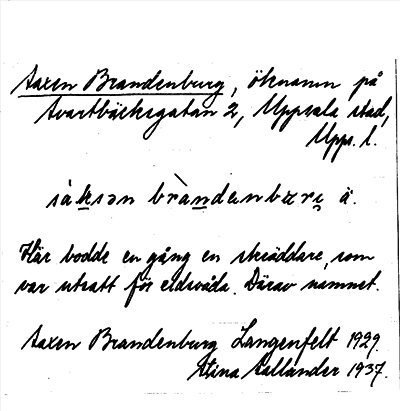 Saxen Brandenburg, öknamn på
Svartbäcksgatan 2, Uppsala stad,
Upps. l.
sáksən bràndenbɯrj ä.
Här bodde en gång en skräddare, som
var utsatt för eldsvåda. Därav namnet.
Saxen Brandenburg Langenfelt 1929.
Stina Sallander 1937.